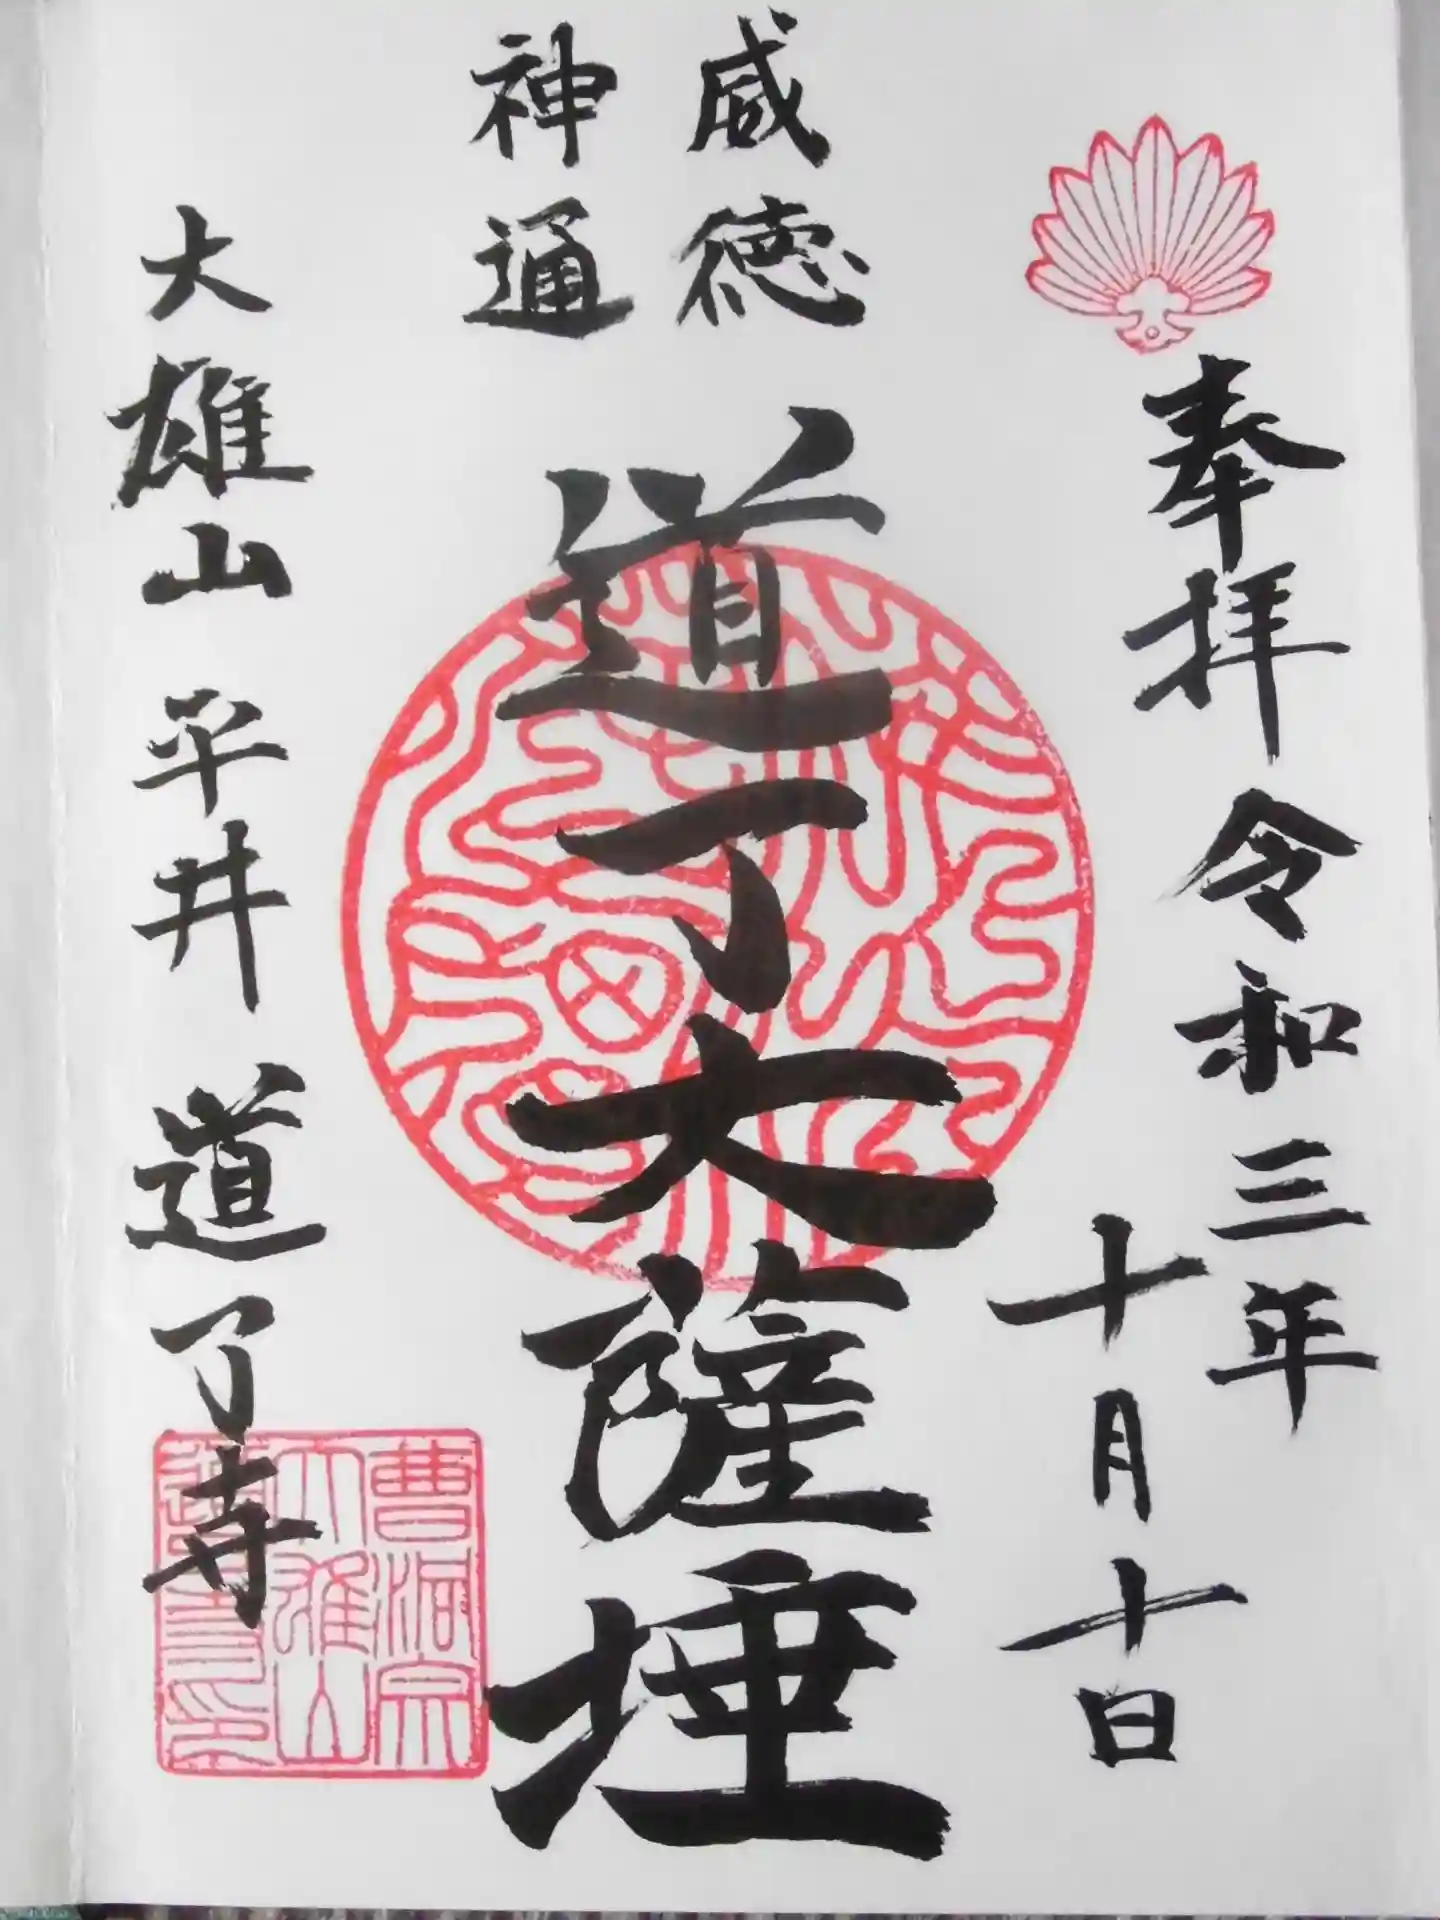 奉拝
令和三年
十月十日
威徳
神通
道了大薩埵
大雄山 平井 道了寺
曹洞宗
大雄山